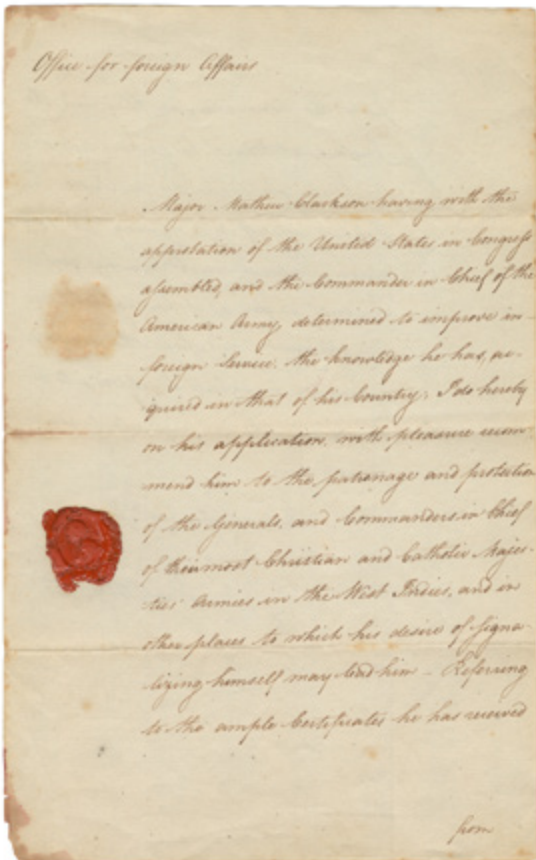 Office for foreign Affairs
Major Mathew Clarkson having with the
approbation of the United States in Congress
assembled, and the Commander in Chief of the
American Army, determined to improve in
foreign Service, the knowledge he has, ac-
quired in that of his Country; I do hereby
on his application, with pleasure recom-
mend him to the patronage and protection
of the Generals, and Commanders in Chief
of their most Christian and Catholic Majes-
ties Armies in the West Indies, and in
other places to which his desire of signa-
lizing himself may lead him – Referring
to the ample Certificates he has received
from